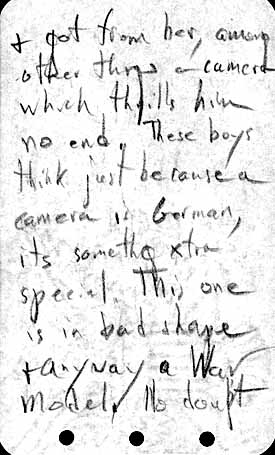 + got from her, among
other thngs a camera
which thrills him
no end. These boys
think just because a
camera is German,
its somethg xtra
special. This one
is in bad shape
+ anyway a War
Model. No doubt